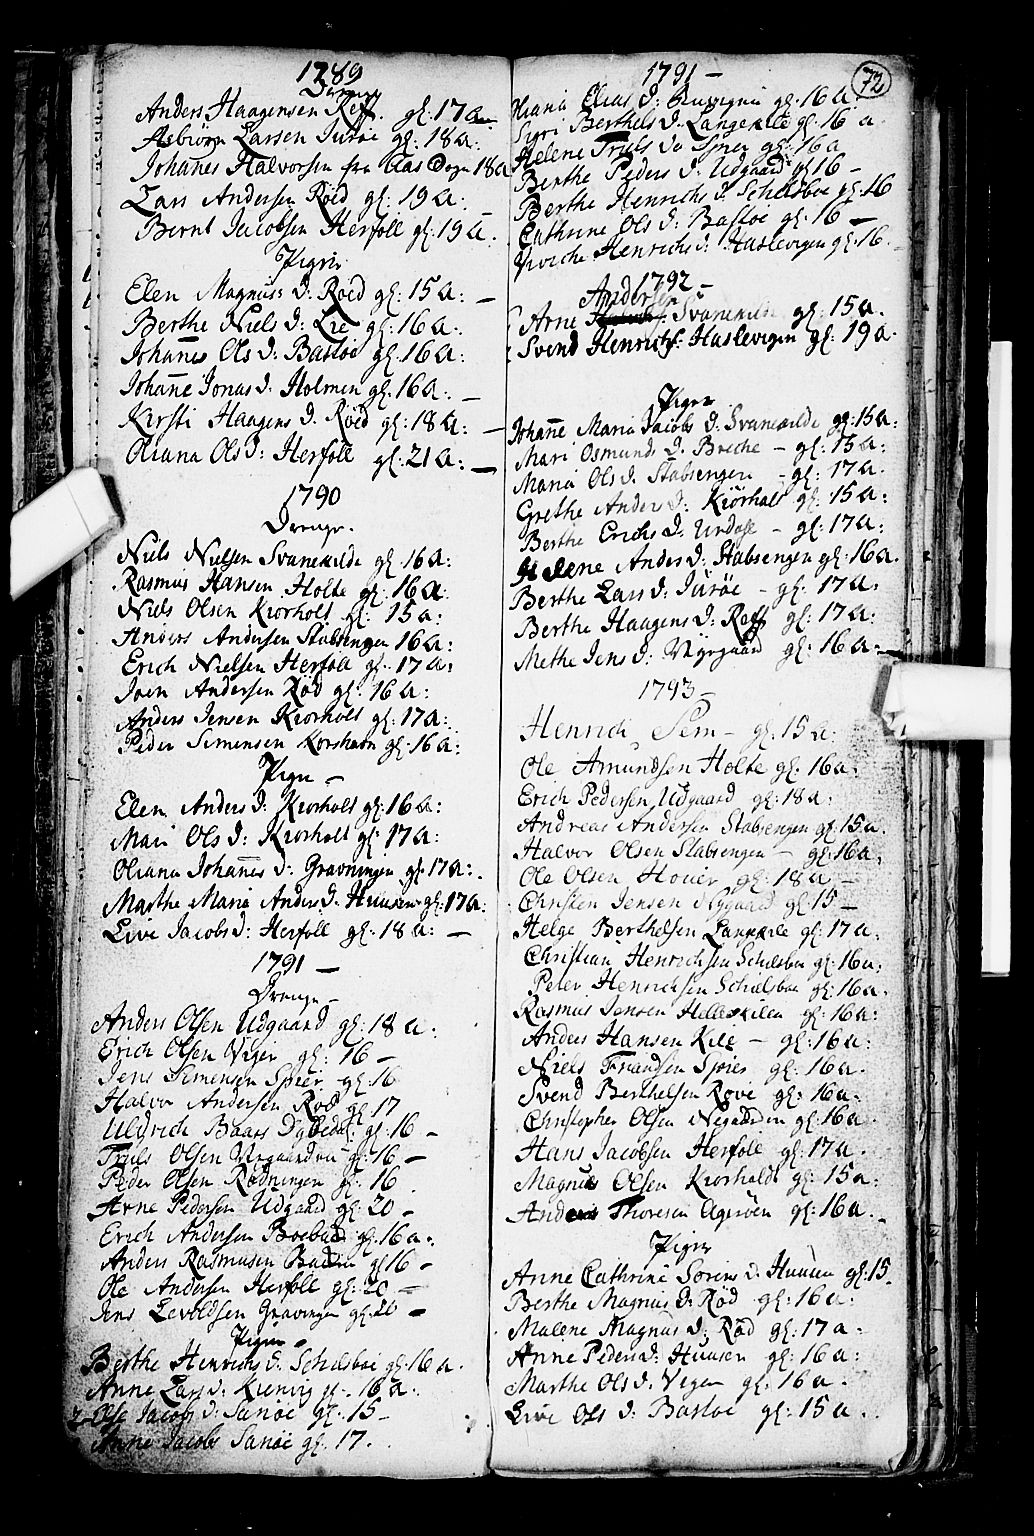 1789
Drenge
Anders Haagensen Röff. gl: 17 a
Asbiörn Larsen Suröe gl: 18 a:
Johanes Halvorsen fra Aas Sogn 18 a
Lars Andersen Röed gl: 19 a:
Bernt Jacobsen Herföll gl: 19 a. –
Piger
Elen Magnus D: Röed gl: 15 a: –
Berthe Niels D: Lie gl: 16 a:
Johanes Ols D: Bastöe gl: 16 a:
Johane Jonas D: Holmen gl: 16 a: –
Kirsti Haagens D. Röed gl: 18 a: –
Oliana Ols D: Herföll gl: 21 a: –
1790
Drenge.
Niels Nielsen Svanekilde gl: 16 a:
Rasmus Hansen Holte gl: 16 a
Niels Olsen Kiorholt gl: 15 a:
Anders Andersen Stabsengen 16 a:
Erich Nielsen Herföll gl: 17 a:
Joen Andersen Röd gl: 16 a:
Anders Jensen Kiorholt gl: 17 a:
Peder Simensen Korshavn gl: 16 a:
Pige –
Elen Anders D: Kiorholt gl: 16 a:
Mari Ols D: Kiorholt gl: 17 a:
Oliana Johanes D: Gravningen gl: 17 a:
Marthe Marie Anders D. Huusen gl: 17 a:
Live Jacobs D: Herföll gl: 18 a: –
1791 –
Drenge –
Anders Olsen Udgaard gl: 18 a:
Erich Olsen Viger gl: 16 –
Jens Simensen Spier gl: 16
Halvor Andersen Röd gl 17
Uldrich Baars gl: 16 –
Truls Olsen gl: 16 –
Peder Olsen Rödningen gl: 16
Arne Pedersen Udgaard gl: 20 –
Erich Andersen gl: 16 a:
Anders Rasmusen gl 16 –
Ole Andersen Herföll gl: 20 –
Jens Gravingen gl: 20 –
Piger –
Berthe Henrichs D. Schelsboe gl: 16 a.
Anne Lars D. gl: 16 a:
Jacobs D: Sanöe gl: 15 –
Anne Jacobs Sanöe gl: 17.
1791 –
72
Elias D: gl: 16 a.
Siri Berthels D. Langekile gl: 16 a.
Helene Truls D: Spier gl: 16 a
Berthe Peders D. Udgaard gl 16 –
Berthe Henrichs D. Schelsboe gl: 16
Cathrine Ols D: Bastöe gl: 16 –
Henrichs D: Haslevigen gl: 16.
1792 –
Andersen
Arne Svanekilde gl: 15 a.
Svend Henrichs: Haslevigen gl: 19 a
Piger
Johane Maria Jacobs D. Svanekilde gl: 15 a:
Mari Osmunds D. Breche – gl: 15 a:
Maria Ols D. Stabsengen – gl: 17 a
Grethe Anders D: Kiörholt gl: 15 a:
Berthe Erichs D: – gl: 17 a:
Helene Anders D: Stabsengen gl: 16 a.
Berthe Lars D: Suröe – gl: 17 a.
Berthe Haagens D: Röff gl: 17 a:
Methe Jens D: Nygaard gl: 16 a: –
1793 –
Henrich Sem – gl: 15 a:
Ole Amundsen Holte gl: 16 a:
Erich Pedersen Udgaard gl: 18 a:
Andreas Andersen Stabsengen gl: 15 a.
Halvor Olsen Stabsengen – gl: 16 a.
Ole Olsen gl: 18 a. –
Christen Jensen Nygaard gl: 15 –
Helge Berthelsen gl: 17 a.
Christian Henrichsen Schelsboe gl: 16 a:
Peter Henrichsen Schelsboe gl: 16 a.
Rasmus Jensen Helleskilen gl: 16 a:
Anders Hansen Kile – gl: 16 a:
Niels Frandsen Spier gl: 16 a.
Svend Berthelsen Röve gl: 16 a:
Christopher Olsen gl: 16 a:
Hans Jacobsen Herföll gl: 17 a.
Magnus Olsen Kiorholt gl: 15 a:
Anders Thoresen Ageröen gl: 16 a. –
Piger
Anne Cathrine Sörens D. Huusen gl: 15.
Berthe Magnus D: Röd gl: 16 a.
Malene Magnus D: Röd gl: 17 a:
Anne Peders D: Huusen gl: 16 a:
Marthe Ols D. Viger gl: 16 a.
Live Ols D. Bastöe gl: 15 a.